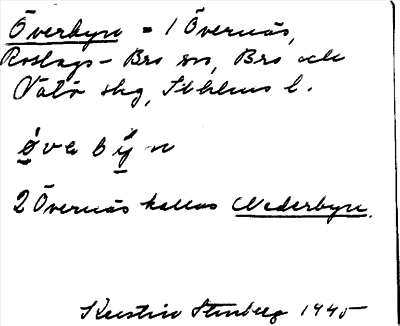 Överbyn = 1 Övernäs,
Roslags-Bro sn, Bro och
Vätö skg, Sthlms l.
øve býn
2 Övernäs kallas Nederbyn.
Kerstin Stenberg 1945